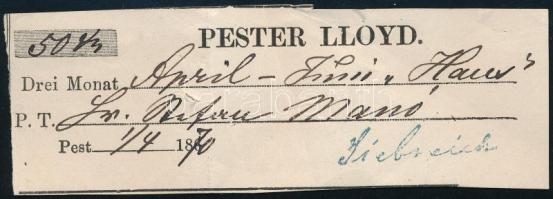 50 kr
PESTER LLOYD.
Drei Monat April - Juni "Haus"
P. T. Hr. Stefan Manó
Pest 1/4 1870